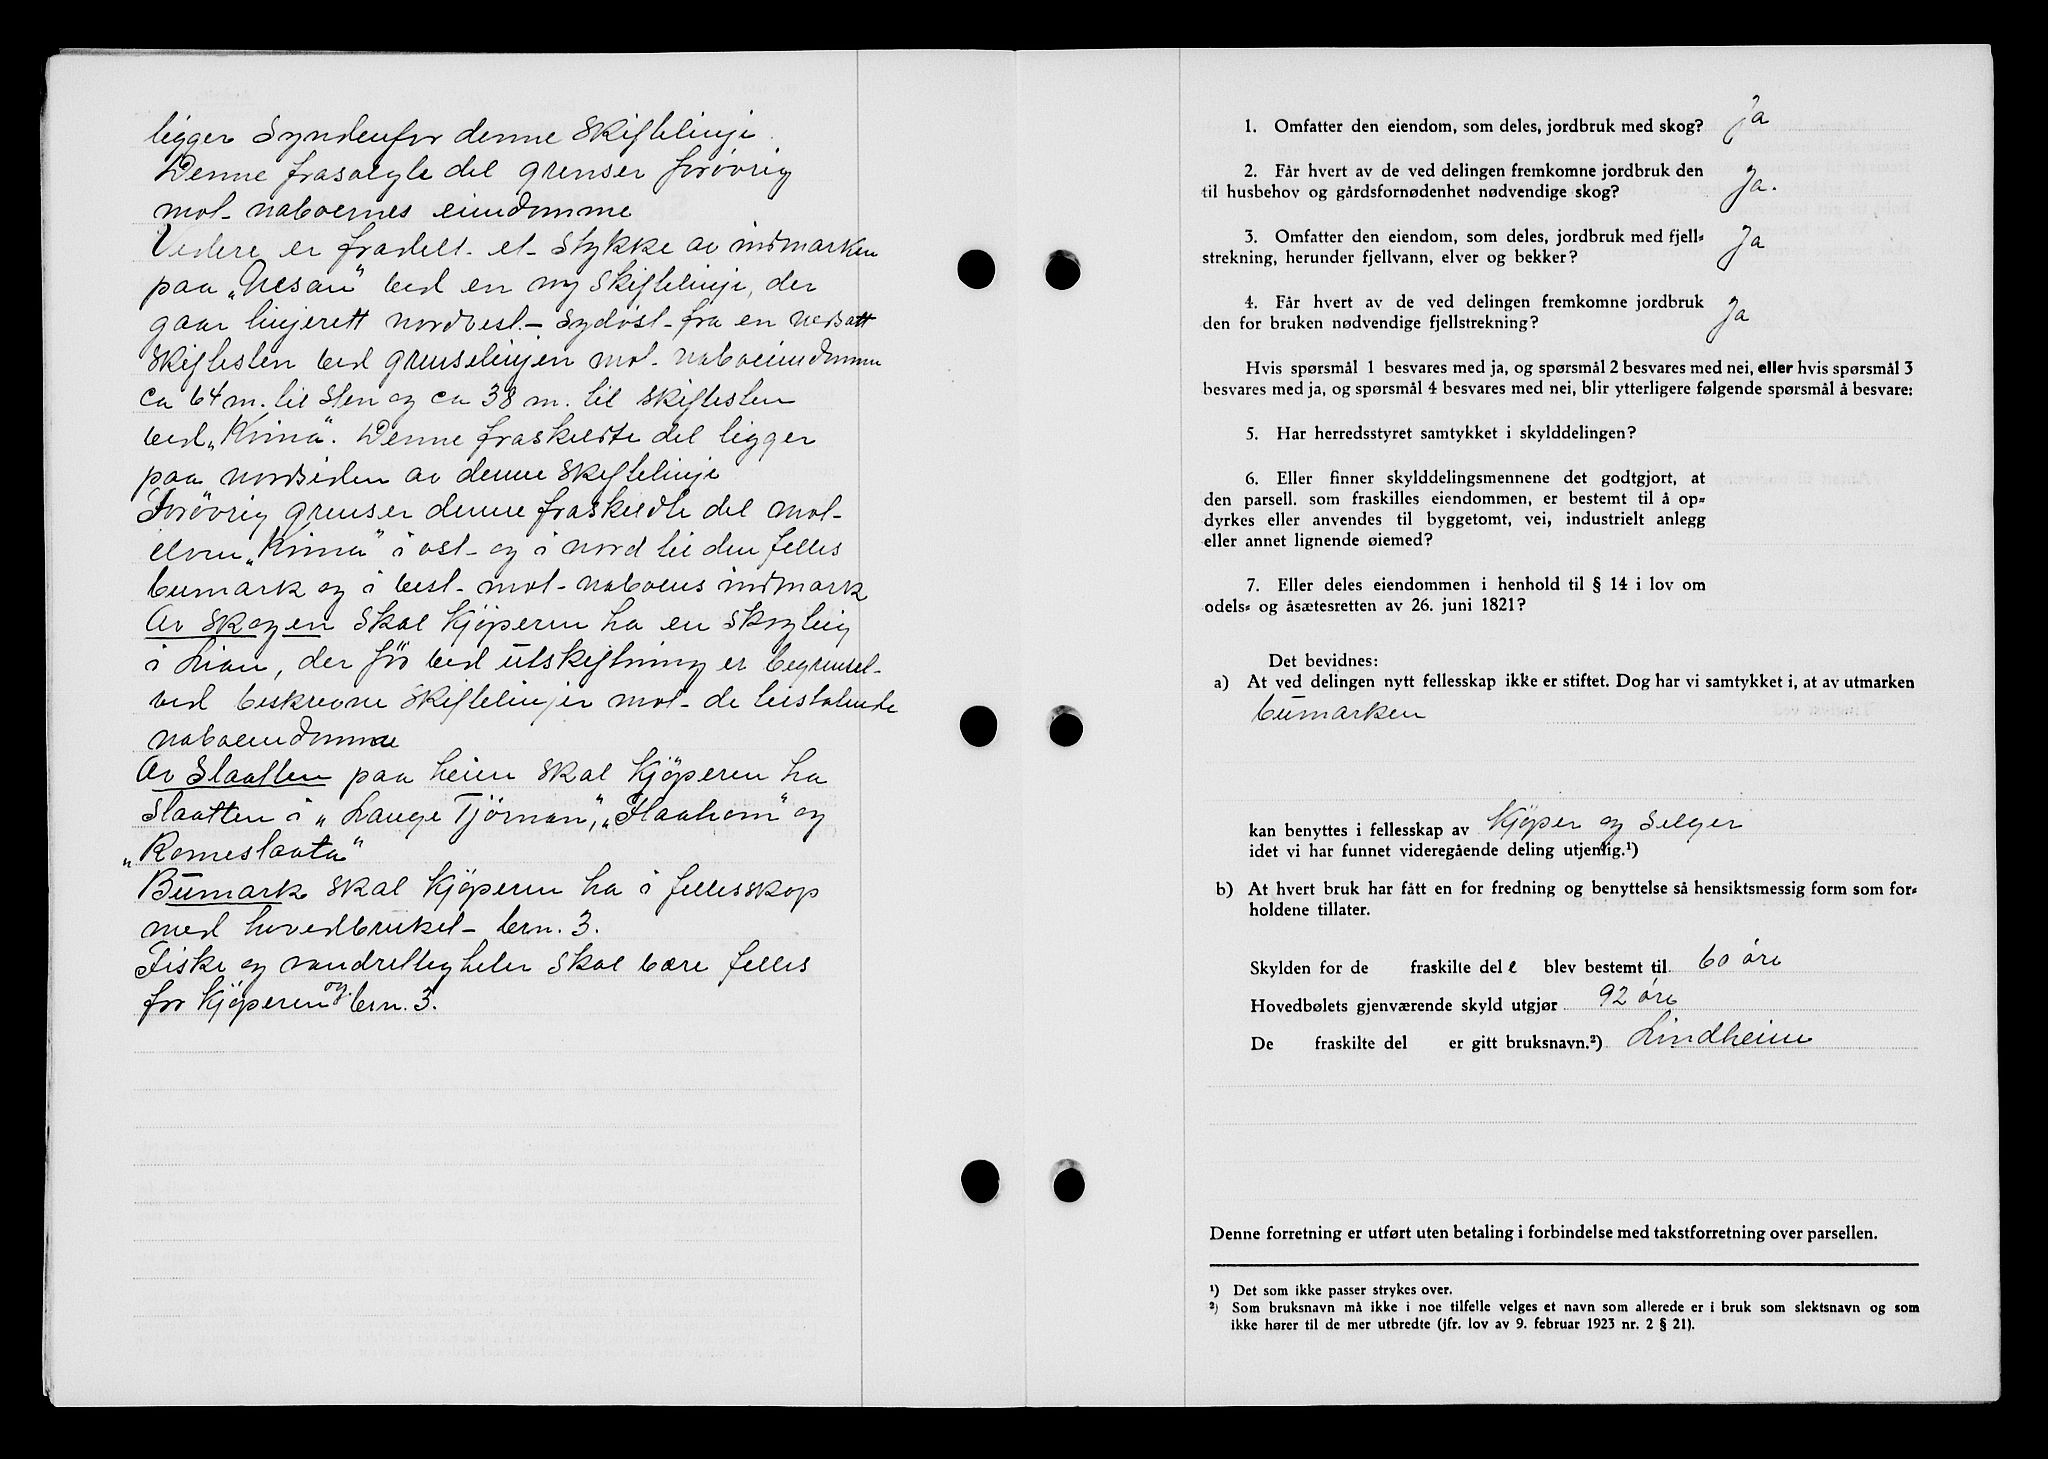 ligger syndenfor denne skiftelinje.
Denne frasolgte del grenser forøvrig
mot naboernes eiendomme
Videre er fradelt et stykke av indmarken
paa „Nesan" ved en ny skiftelinje, der
gaar linjerett nordvest - sydöst fra en nedsatt
skiftesten ved grenselinjen mot naboeiendomme
ca 64 m. til sten og ca 38 m. til skiftesten
ved „Kinna". Denne fraskildte del ligger
paa nordsiden av denne skiftelinje
Forövrig grenser denne fraskildte del mot
elven „Kinna" i ost og i nord til den felles
bumark og i vest mot naboens indmark
Av skogen skal kjöperen ha en skogteig
i Lian, der för ved utskiftning er begrenset
ved beskrevne skiftelinjer mot de tilstötende
naboeiendomme
Av Slaatten paa heien skal kjöperen ha
slaatten i „Lange Tjörnan", „Flaahom" og
„Romeslaata"
Bumark skal kjöperen ha i fellesskap
med hovedbruket brn. 3.
Fiske og vandrettigheter skal være felles
for kjöperen og brn. 3.
1. Omfatter den eiendom, som deles, jordbruk med skog? Ja
2. Får hvert av de ved delingen fremkomne jordbruk den
til husbehov og gårdsfornødenhet nødvendige skog? Ja.
3. Omfatter den eiendom, som deles, jordbruk med fjell=
strekning, herunder fjellvann, elver og bekker? Ja
4. Får hvert av de ved delingen fremkomne jordbruk
den for bruken nødvendige fjellstrekning? Ja
Hvis spørsmål 1 besvares med ja, og spørsmål 2 besvares med nei, eller hvis spørsmål 3
besvares med ja, og spørsmål 4 besvares med nei, blir ytterligere følgende spørsmål å besvare:
5. Har herredsstyret samtykket i skylddelingen?
6. Eller finner skylddelingsmennene det godtgjort, at
den parsell. som fraskilles eiendommen, er bestemt til å op=
dyrkes eller anvendes til byggetomt, vei, industrielt anlegg
eller annet lignende øiemed?
7. Eller deles eiendommen i henhold til § 14 i lov om
odels= og åsætesretten av 26. juni 1821?
Det bevidnes:
a) At ved delingen nytt fellesskap ikke er stiftet. Dog har vi samtykket i, at av utmarken
bumarken
kan benyttes i fellesskap av Kjöper og selger
idet vi har funnet videregående deling utjenlig.¹)
b) At hvert bruk har fått en for fredning og benyttelse så hensiktsmessig form som for=
holdene tillater.
Skylden for de fraskilte del e blev bestemt til 60 öre
Hovedbølets gjenværende skyld utgjør 92 öre
De fraskilte del er gitt bruksnavn.²) Lindheim
Denne forretning er utført uten betaling i forbindelse med takstforretning over parsellen.
¹) Det som ikke passer strykes over.
²) Som bruksnavn må ikke i noe tilfelle velges et navn som allerede er i bruk som slektsnavn og som
ikke hører til de mer utbredte (jfr. lov av 9. februar 1923 nr. 2 § 21).